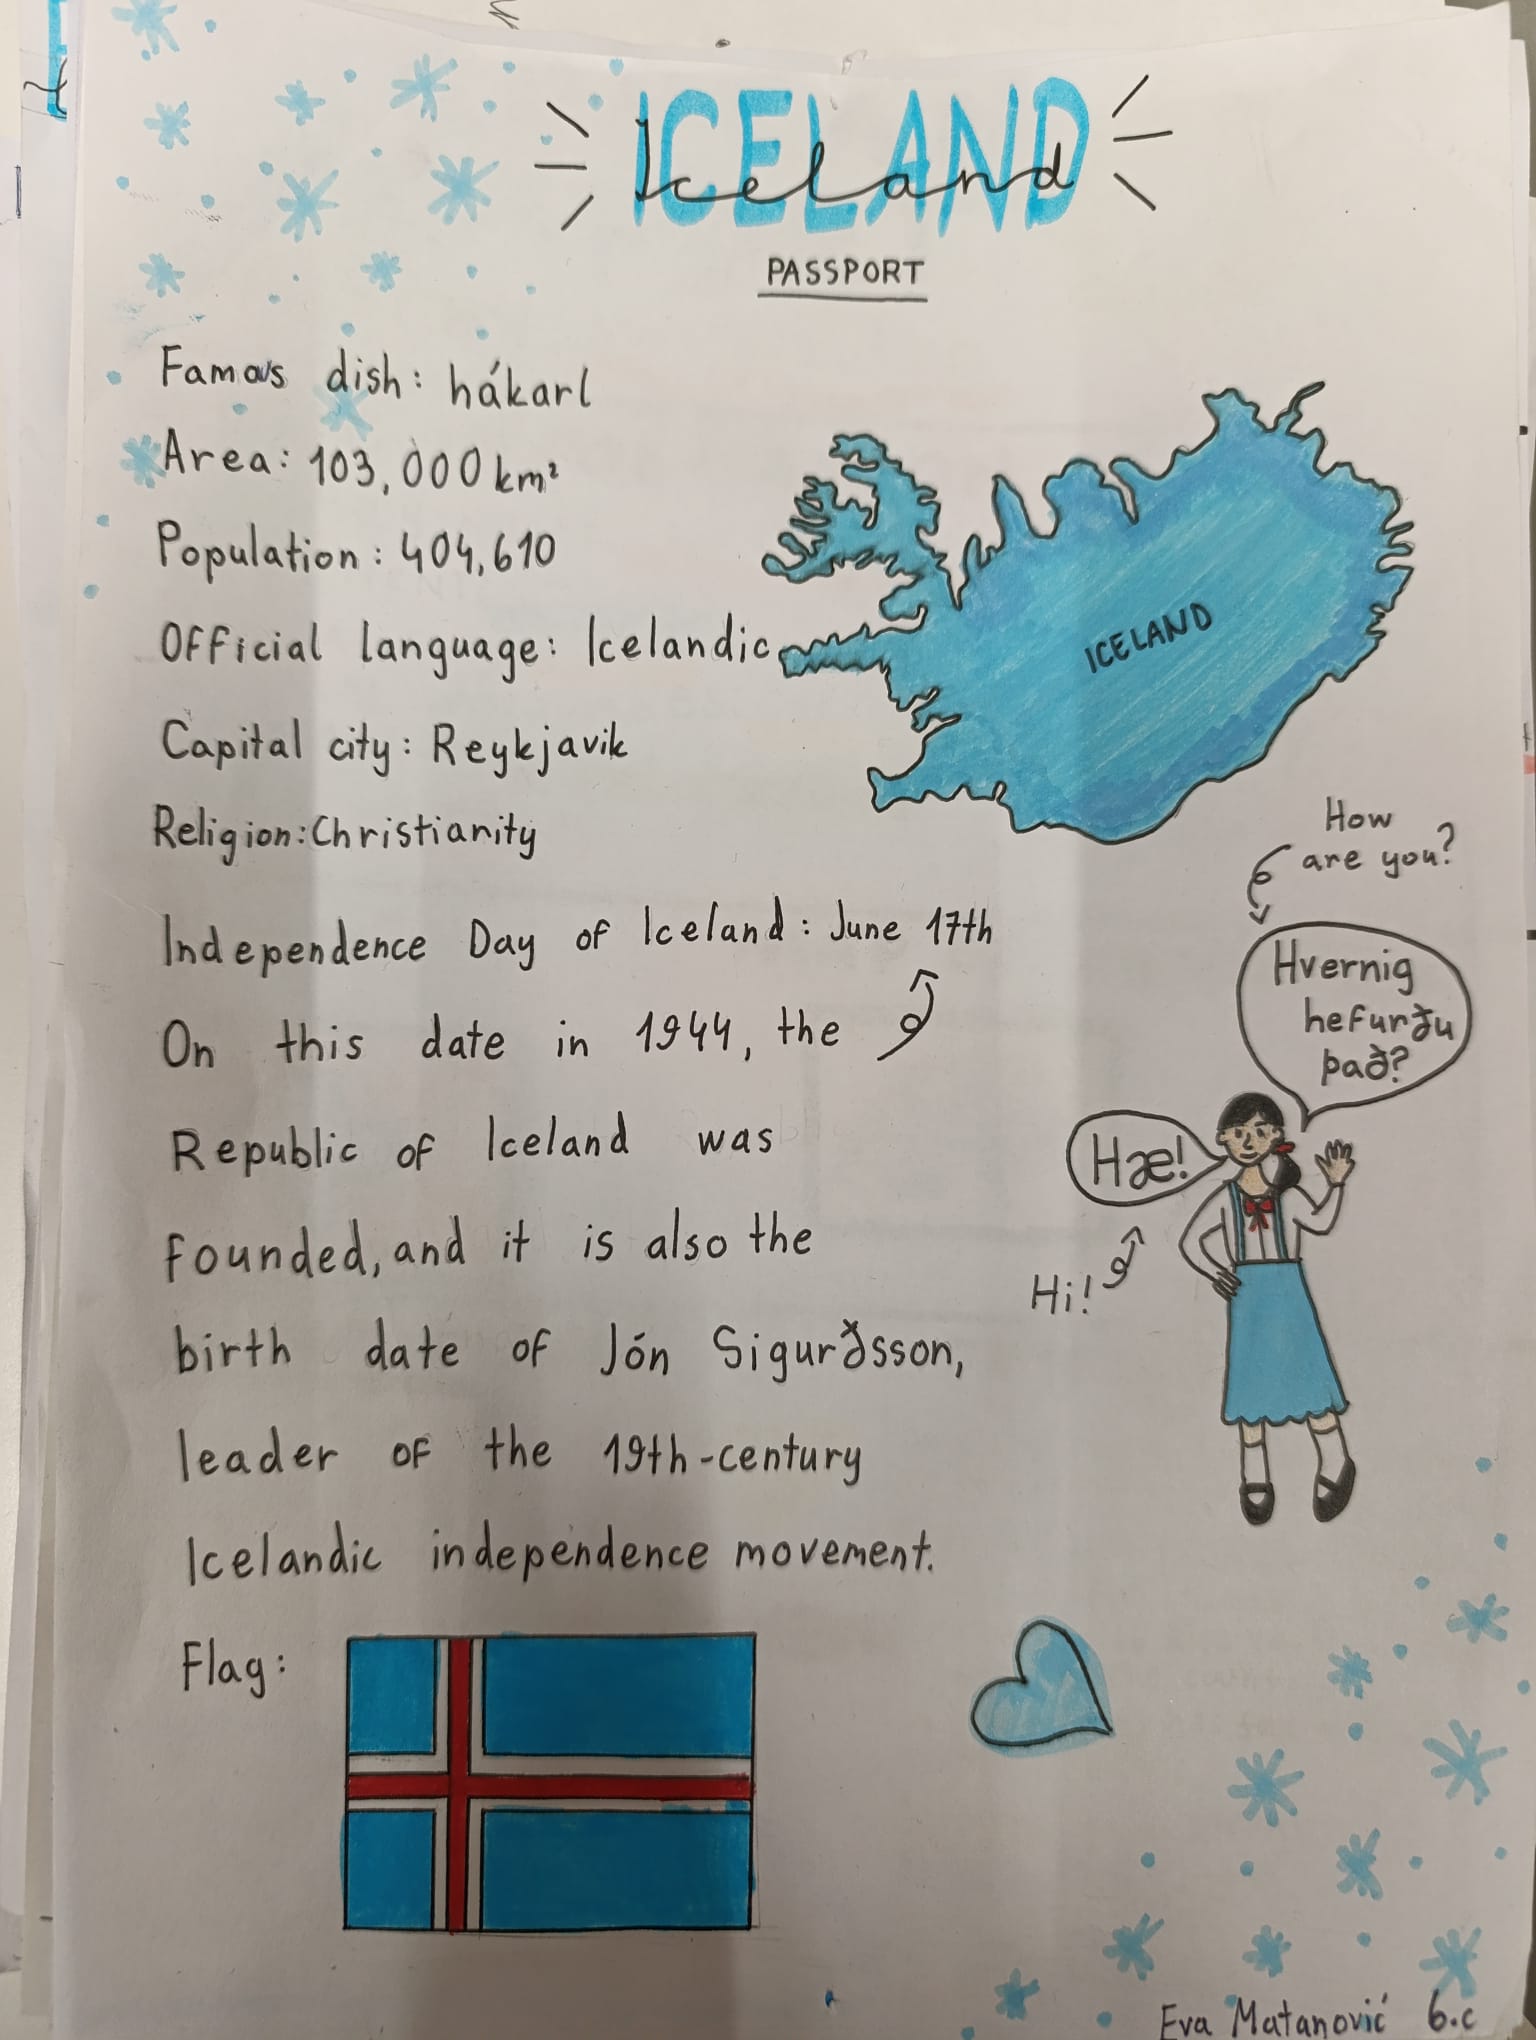 ICELAND
Iceland
PASSPORT
Famous dish: hákarl
Area: 103,000 km²
Population: 404,610
Official language: Icelandic
Capital city: Reykjavik
Religion: Christianity
ICELAND
Independence Day of Iceland: June 17th
On this date in 1944, the
Republic of Iceland was
founded, and it is also the
birth date of Jón Sigurðsson,
leader of the 19th-century
Icelandic independence movement.
How
are you?
Hvernig
hefurðu
það?
Hæ!
Hi!
Flag:
Eva Matanović 6.c